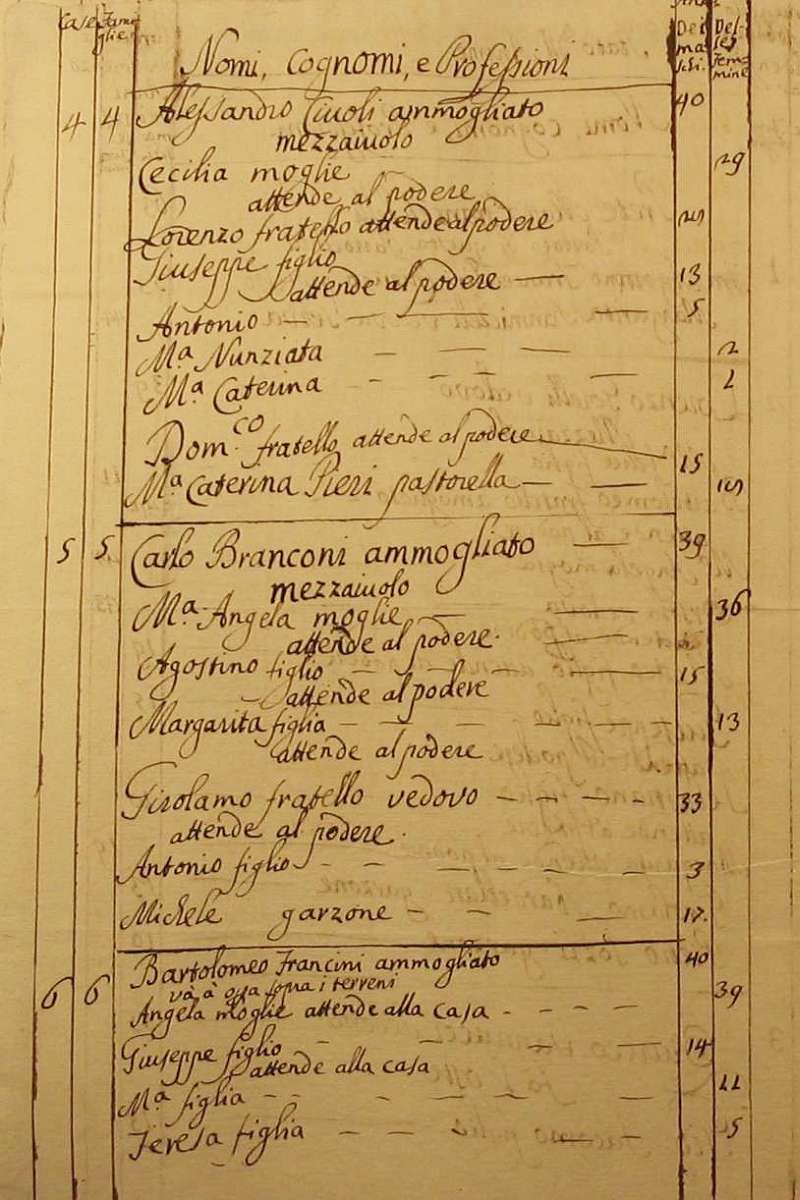 Case Fami glie Nomi, Cognomi, e Professioni Dei ma schi. Del les Fem mine
4 4 Alessandro Ciuoli ammogliato 40
mezzaiuolo
Cecilia moglie 29
attende al podere
Lorenzo fratello attende al podere
Giuseppe figlio
attende al podere — 13
Antonio — — — — 5
Mª Nunziata — — — 2
Mª Caterina - — — — 1
Dom.co fratello attende al podere 15
Mª Caterina Pieri pastorella — —
5 5. Carlo Branconi ammogliato — 39
mezzaiuolo
Mª Angela moglie — — 36
attende al podere.
Agostino figlio — — — — 15
attende al podere
Margarita figlia — — — — — — 13
attende al podere
Girolamo fratello vedovo — — — - 33
attende al podere.
Antonio figlio — - — — — — — 3
Michele garzone — — — 17.
6 6 Bartolomeo Francini ammogliato 40
và à opra sopra i terreni
Angela moglie attende alla casa - - - — 39
Giuseppe figlio — - — — 14
attende alla casa
Mª figlia - - - — — — 11
Teresa figlia — — - — — 5